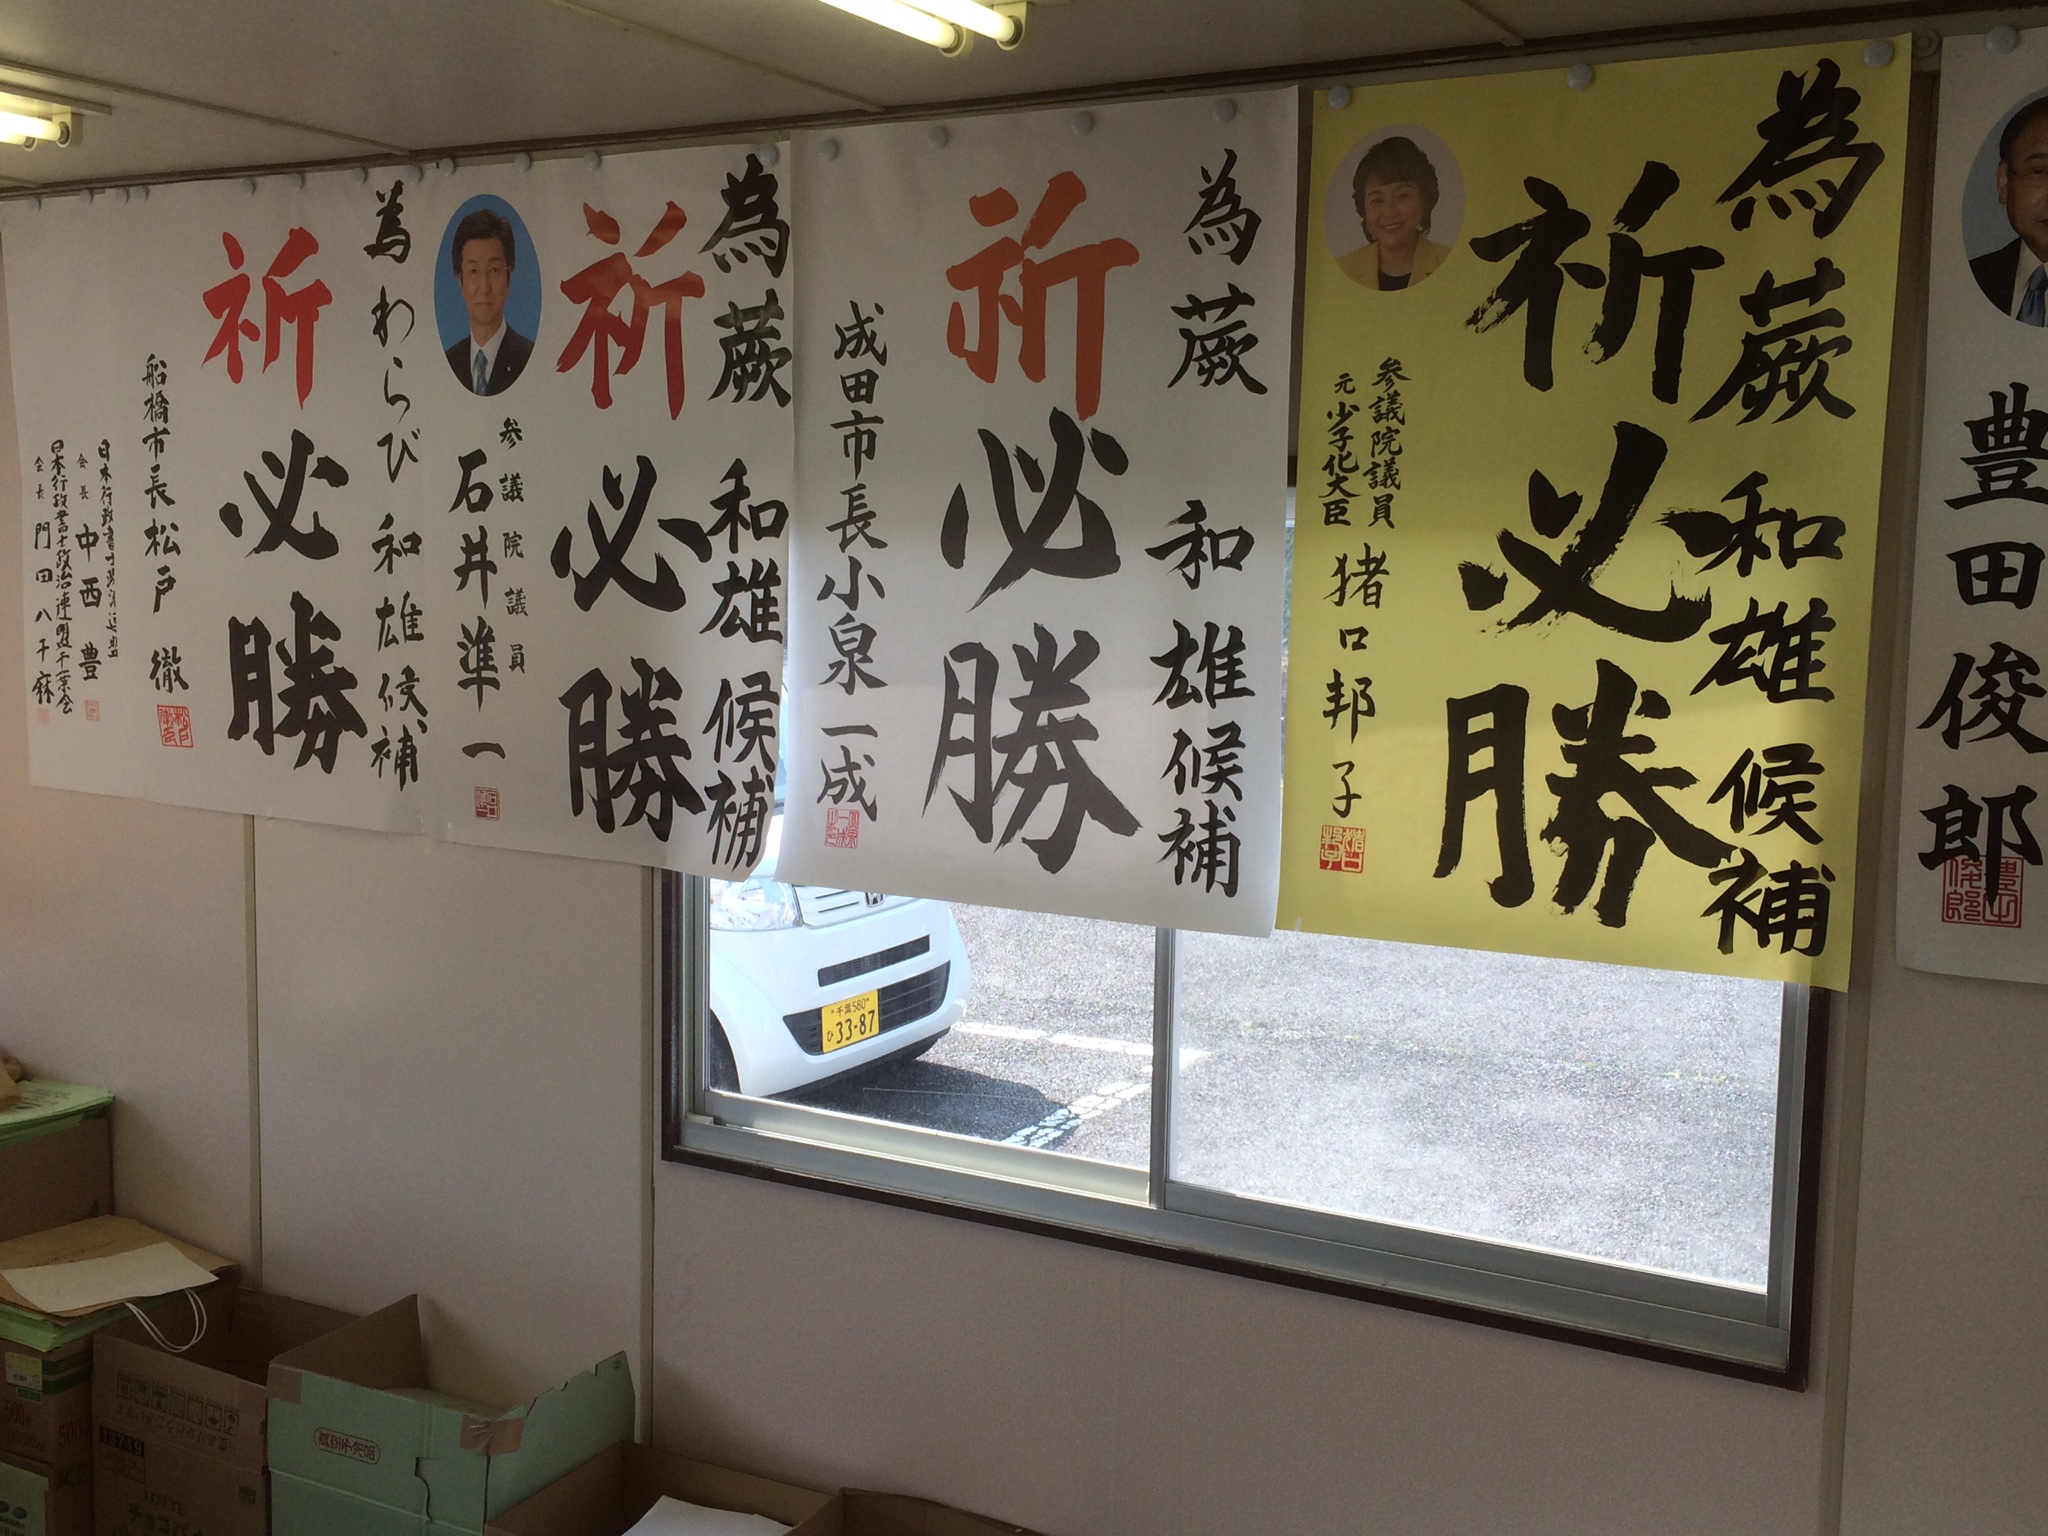 豊田俊郎
為蕨 和雄候補
祈必勝
参議院議員
元少子化大臣
猪口邦子
為蕨 和雄候補
祈必勝
成田市長小泉一成
為蕨 和雄候補
祈必勝
参議院議員
石井準一
為わらび 和雄候補
祈必勝
船橋市長松戸 徹
会長 中西 豊
日本行政書士政治連盟千葉会
会長 門田八千麻
千葉580
ひ 33-87
13719
LOTTE